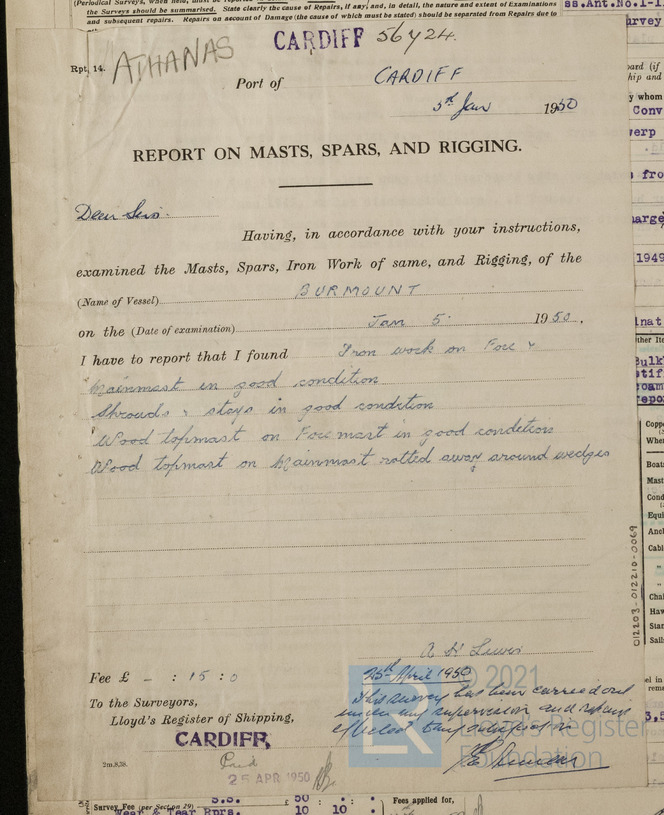 (Periodical Surveys, when held, must be reported
the Surveys should be summarised. State clearly the cause of Repairs, if any; and, in detail, the nature and extent of Examinations
and subsequent repairs. Repairs on account of Damage (the cause of which must be stated) should be separated from Repairs due to
ss.Ant.No.1-1
urvey
CARDIFF 56424.
Rpt. 14.
ATHANAS
Port of CARDIFF
5th Jan 1950
REPORT ON MASTS, SPARS, AND RIGGING.
Dear Sirs.
Having, in accordance with your instructions,
examined the Masts, Spars, Iron Work of same, and Rigging, of the
(Name of Vessel) BURMOUNT
on the (Date of examination) Jan 5. 1950,
I have to report that I found Iron work on Fore &
Mainmast in good condition
Shrouds & stays in good condition
Wood topmast on Foremast in good condition
Wood topmast on Mainmast rotted away around wedges
A H Lewis
Fee £ - : 15 : 0
25th April 1950
This survey has been carried out
under my supervision and repairs
effected
To the Surveyors,
Lloyd's Register of Shipping,
CARDIFF,
Paid
2m,9,38.
25 APR 1950
© 2021
Lloyd's Register
Foundation
LR
012203-012210-0069
ard (if
hip and
y whom
Conv
werp
fro
arge
1949
inat
ther Ite
Bulk
tif
oam
repo
Coppe
Whe
Boats
Mast
Cond
Equi
Anch
Cabl
"
"
Chai
Haw
Star
Sails
el in
rema
3,5
Survey Fee (per Section 29) S.S. £ 50 : :
Wear & Tear Rprs. 10 : 10 :
Fees applied for,